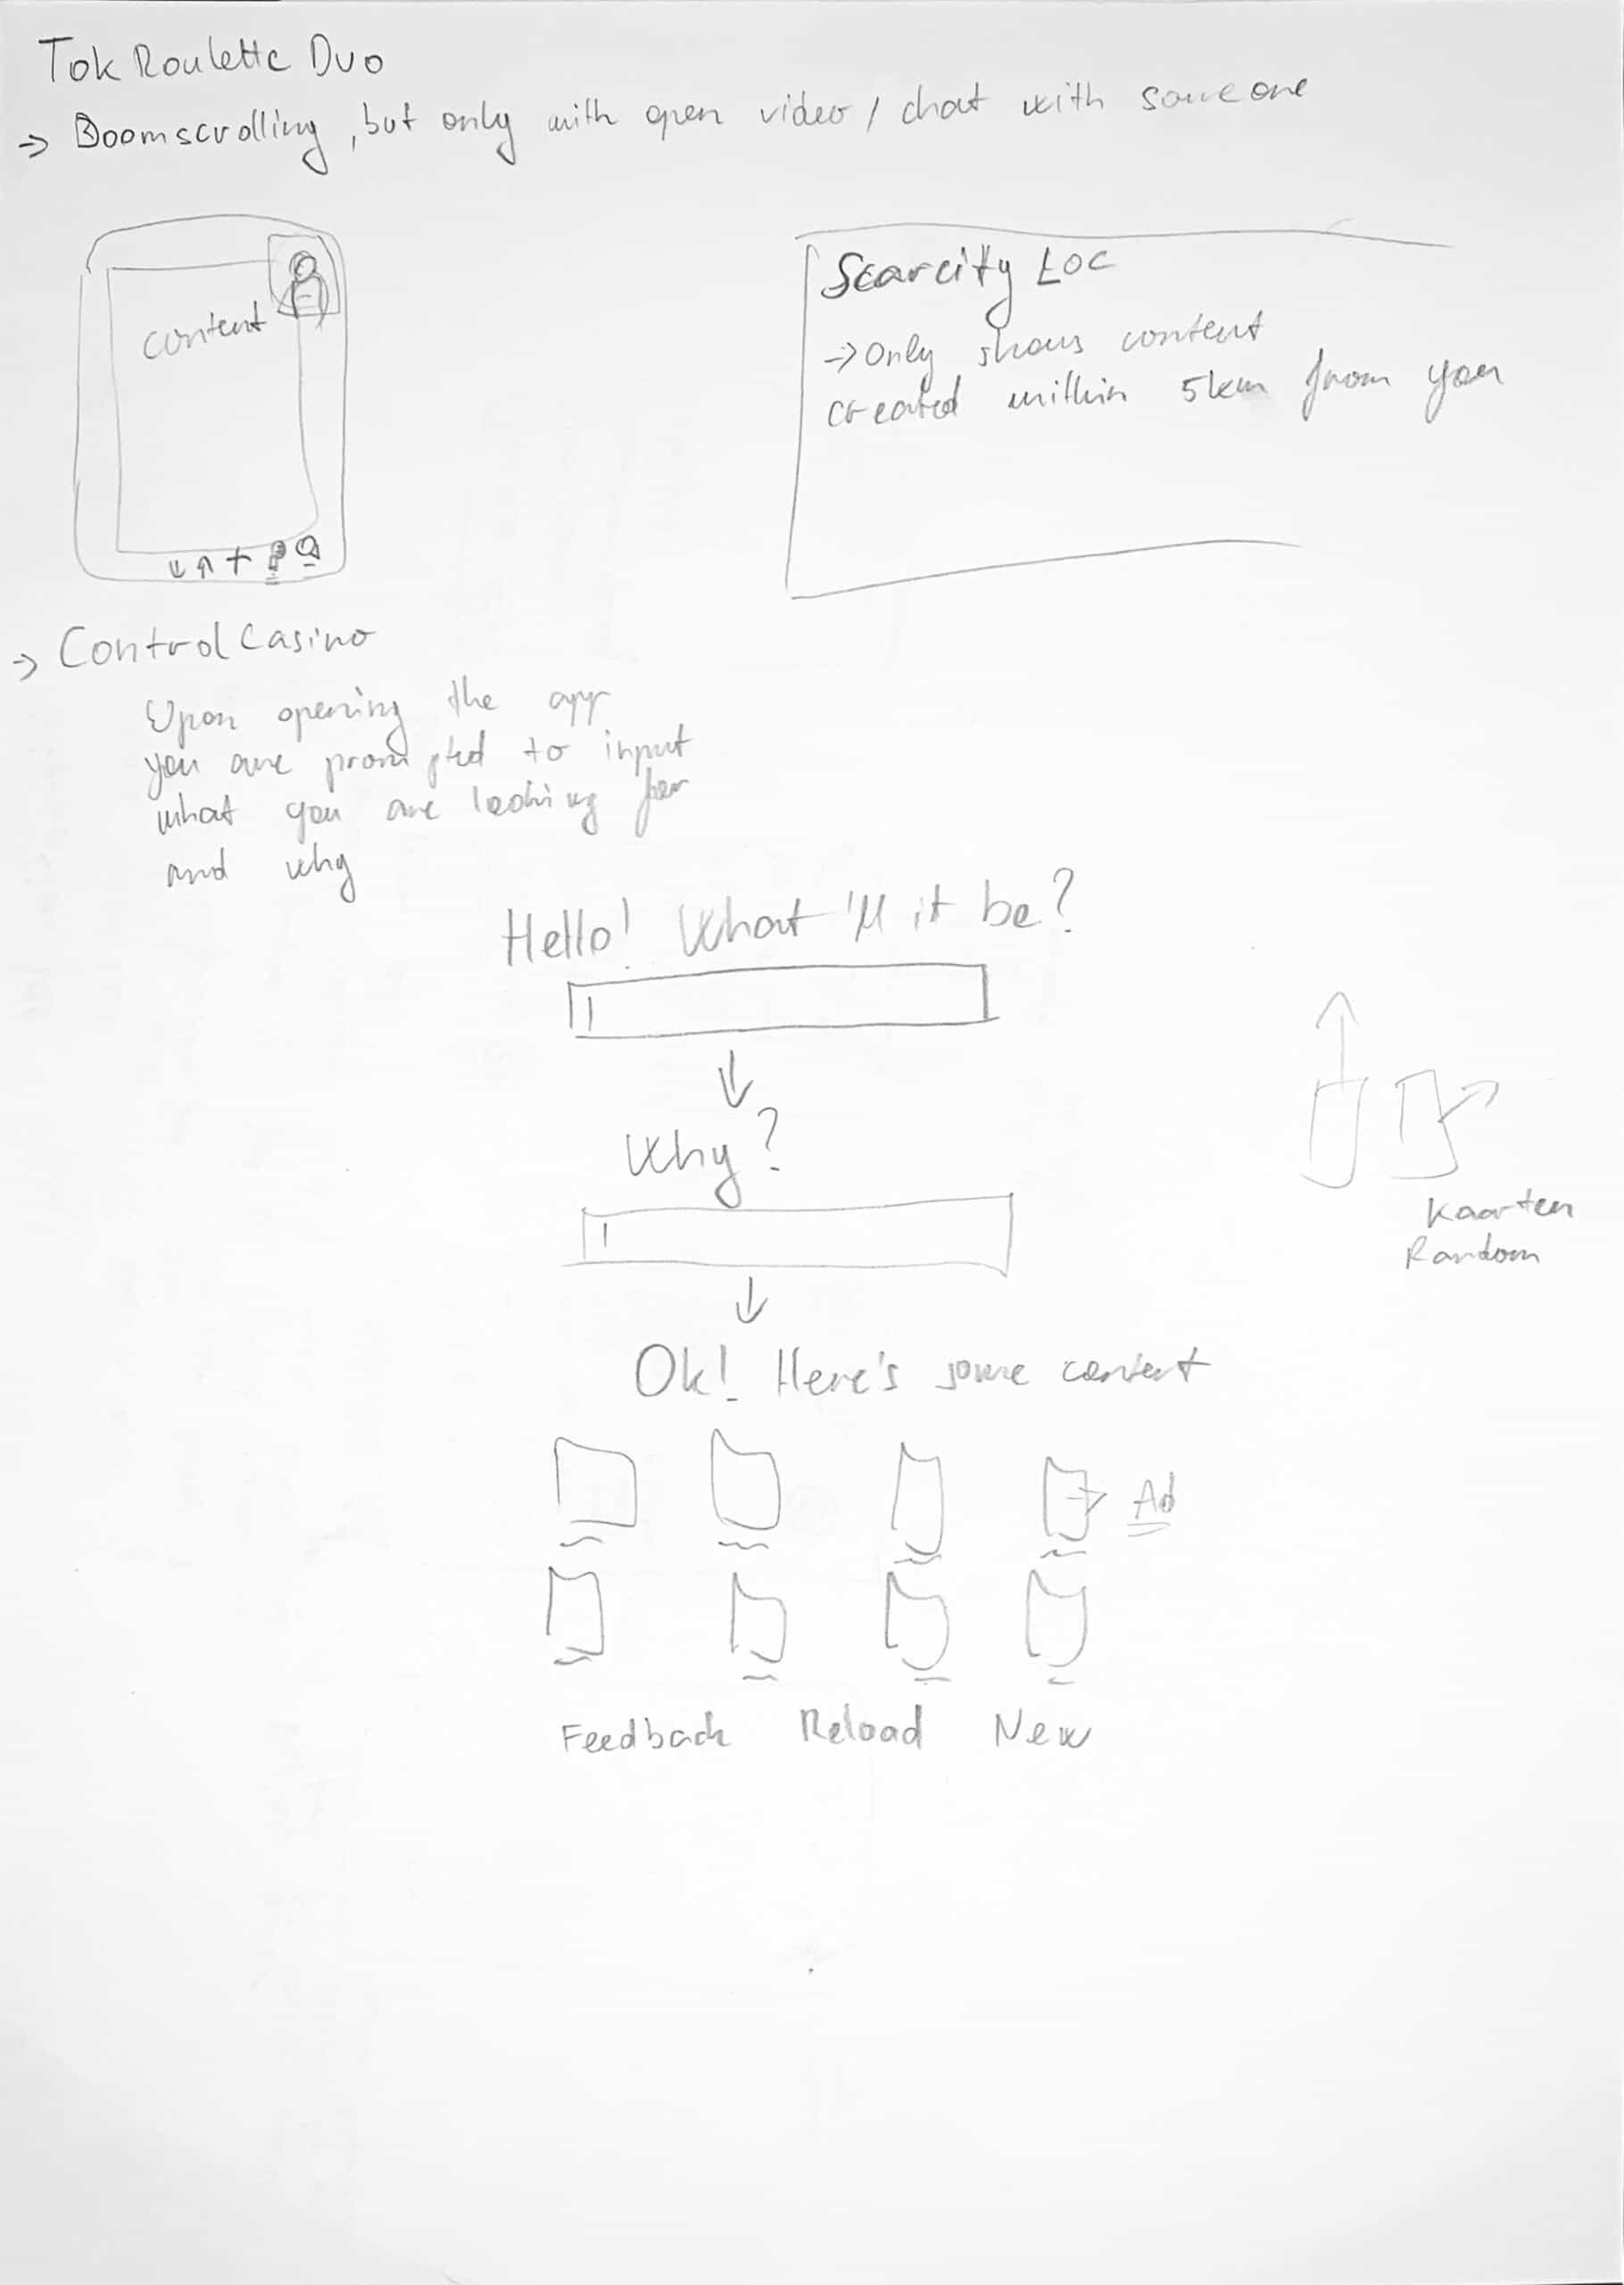 Tok Roulette Duo
→ Doomscrolling, but only with open video / chat with someone
content
Scarcity Loc
→ Only shows content
created within 5km from you
→ Control Casino
Upon opening the app
you are prompted to input
what you are looking for
and why
Hello! What 'll it be?
Why?
Kaarten
Random
Ok! Here's some content
Ad
Feedback Reload New